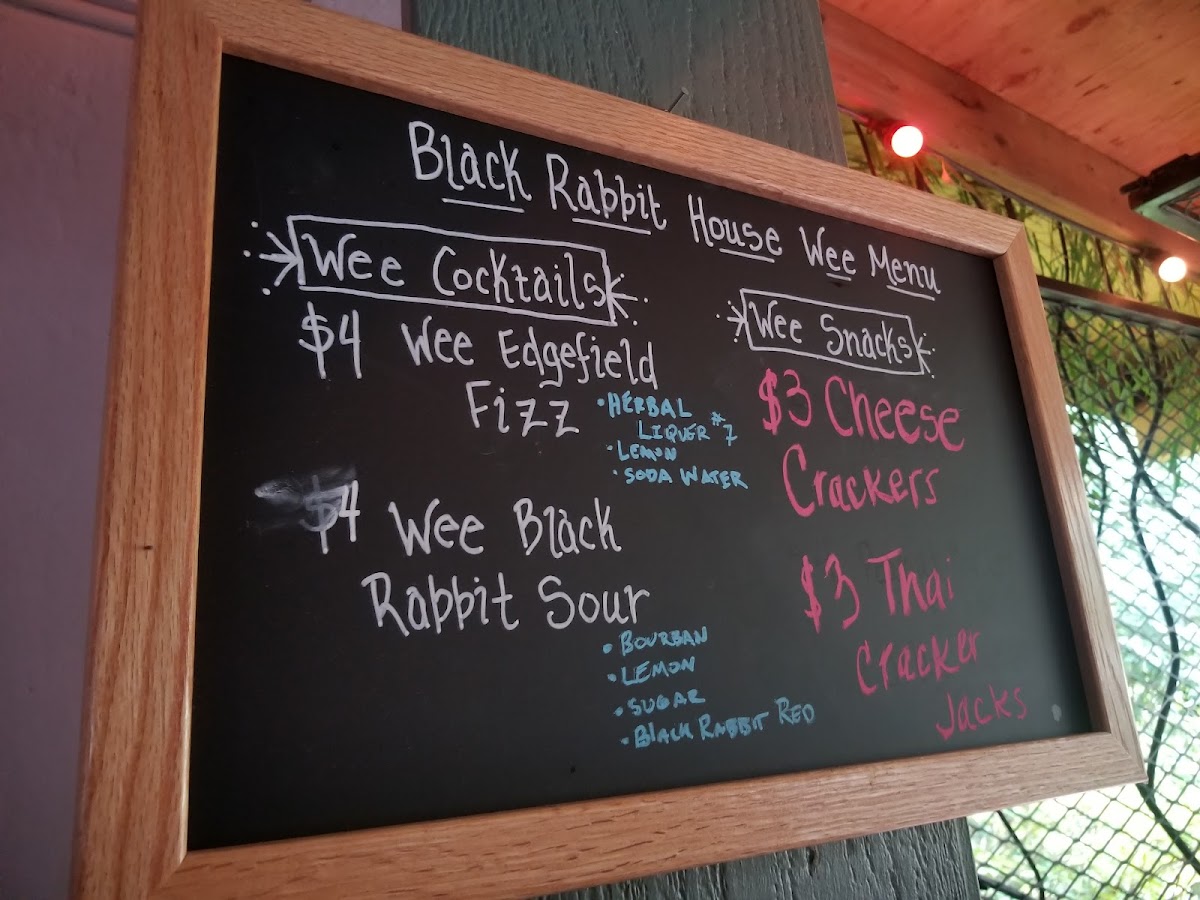 Black Rabbit House Wee Menu
Wee Cocktails
$4 Wee Edgefield
Fizz
• HERBAL
LIQUER #7
• LEMON
• SODA WATER
$4 Wee Black
Rabbit Sour
• BOURBAN
• LEMON
• SUGAR
• BLACK RABBIT RED
Wee Snacks
$3 Cheese
Crackers
$3 Thai
Cracker
Jacks